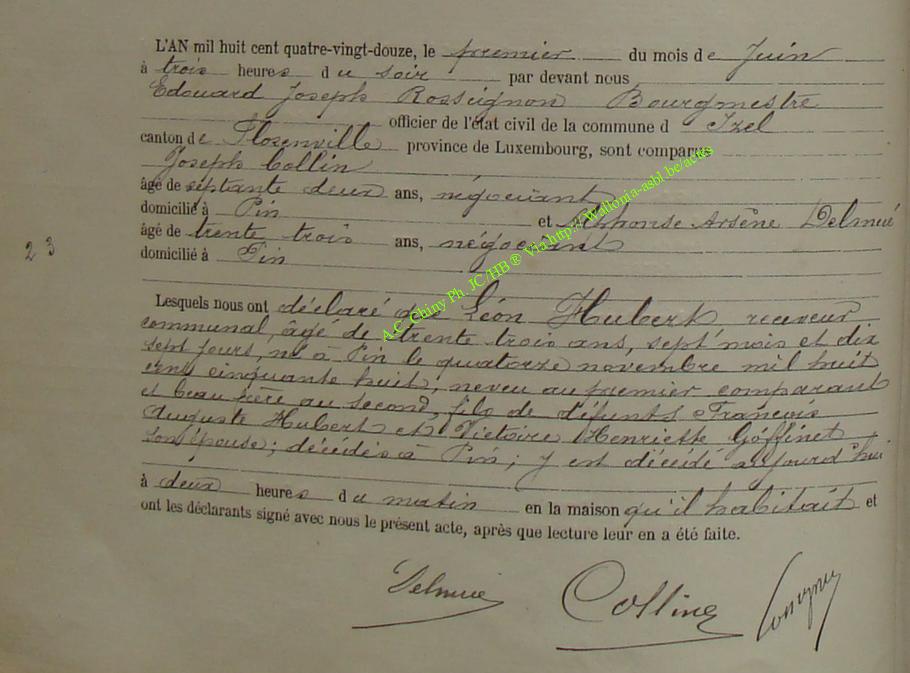 L'AN mil huit cent quatre-vingt-douze, le premier du mois de Juin
à trois heures du soir par devant nous
Edouard Joseph Rossignon Bourgmestre
officier de l'état civil de la commune d Izel
canton de Florenville province de Luxembourg, sont comparus
Joseph Collin
âgé de septante deux ans, négociant
domicilié à Pin et Alphonse Arsène Delmué
âgé de trente trois ans, négociant
domicilié à Pin
23
Lesquels nous ont déclaré que Léon Hubert receveur
communal, âgé de trente trois ans, sept mois et dix
sept jours, né à Pin le quatorze novembre mil huit
cent cinquante huit, neveu au premier comparant
et beau frère au second, fils de défunts François
Auguste Hubert et Victoire Henriette Goffinet
son épouse; décédés à Pin; y est décédé aujourd'hui
à deux heures du matin en la maison qu'il habitait et
ont les déclarants signé avec nous le présent acte, après que lecture leur en a été faite.
Delmué Collin
A.C. Chiny Ph. JC/HB ® Via http://Wallonia-asbl.be/actes